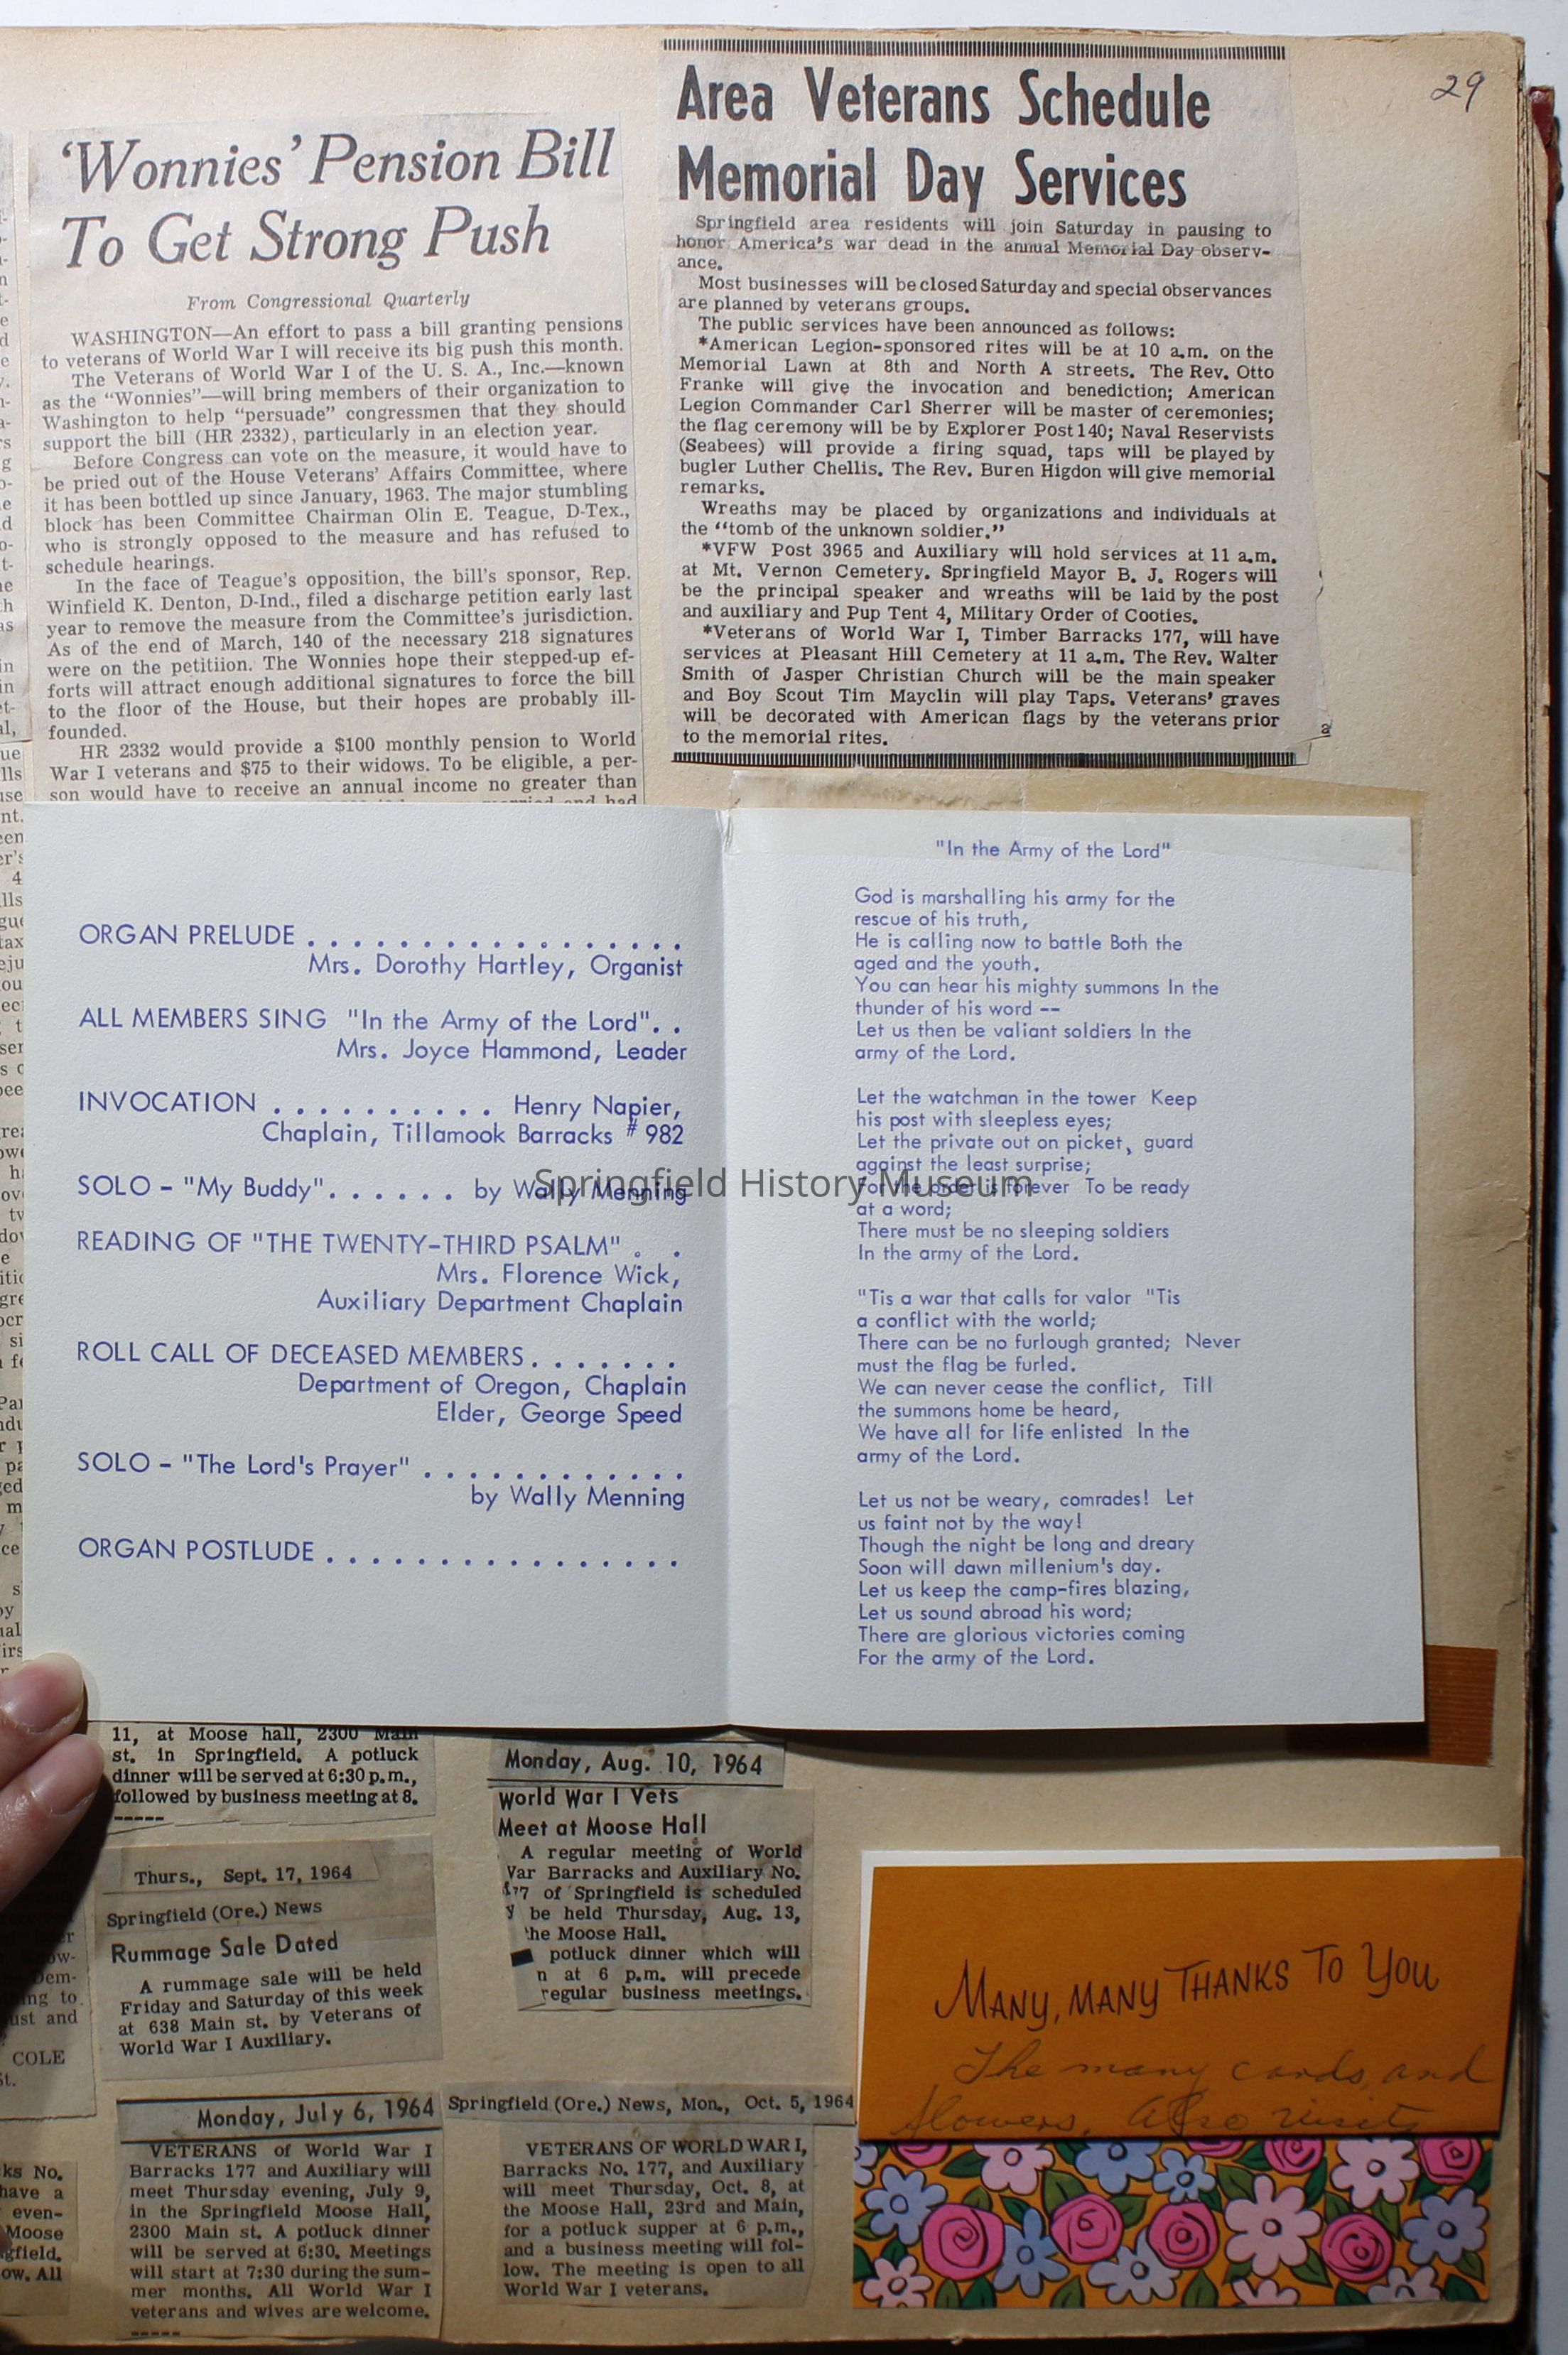 29
‘Wonnies’ Pension Bill
To Get Strong Push
From Congressional Quarterly
WASHINGTON—An effort to pass a bill granting pensions
to veterans of World War I will receive its big push this month.
The Veterans of World War I of the U. S. A., Inc.—known
as the “Wonnies”—will bring members of their organization to
Washington to help “persuade” congressmen that they should
support the bill (HR 2332), particularly in an election year.
Before Congress can vote on the measure, it would have to
be pried out of the House Veterans’ Affairs Committee, where
it has been bottled up since January, 1963. The major stumbling
block has been Committee Chairman Olin E. Teague, D-Tex.,
who is strongly opposed to the measure and has refused to
schedule hearings.
In the face of Teague’s opposition, the bill’s sponsor, Rep.
Winfield K. Denton, D-Ind., filed a discharge petition early last
year to remove the measure from the Committee’s jurisdiction.
As of the end of March, 140 of the necessary 218 signatures
were on the petitiion. The Wonnies hope their stepped-up ef-
forts will attract enough additional signatures to force the bill
to the floor of the House, but their hopes are probably ill-
founded.
HR 2332 would provide a $100 monthly pension to World
War I veterans and $75 to their widows. To be eligible, a per-
son would have to receive an annual income no greater than
married and had
Area Veterans Schedule
Memorial Day Services
Springfield area residents will join Saturday in pausing to
honor America’s war dead in the annual Memorial Day observ-
ance.
Most businesses will be closed Saturday and special observances
are planned by veterans groups.
The public services have been announced as follows:
*American Legion-sponsored rites will be at 10 a.m. on the
Memorial Lawn at 8th and North A streets. The Rev. Otto
Franke will give the invocation and benediction; American
Legion Commander Carl Sherrer will be master of ceremonies;
the flag ceremony will be by Explorer Post 140; Naval Reservists
(Seabees) will provide a firing squad, taps will be played by
bugler Luther Chellis. The Rev. Buren Higdon will give memorial
remarks.
Wreaths may be placed by organizations and individuals at
the “tomb of the unknown soldier.”
*VFW Post 3965 and Auxiliary will hold services at 11 a.m.
at Mt. Vernon Cemetery. Springfield Mayor B. J. Rogers will
be the principal speaker and wreaths will be laid by the post
and auxiliary and Pup Tent 4, Military Order of Cooties.
*Veterans of World War I, Timber Barracks 177, will have
services at Pleasant Hill Cemetery at 11 a.m. The Rev. Walter
Smith of Jasper Christian Church will be the main speaker
and Boy Scout Tim Mayclin will play Taps. Veterans’ graves
will be decorated with American flags by the veterans prior
to the memorial rites.
ORGAN PRELUDE . . . . . . . . . . . . . . . . .
Mrs. Dorothy Hartley, Organist
ALL MEMBERS SING "In the Army of the Lord". .
Mrs. Joyce Hammond, Leader
INVOCATION . . . . . . . . . . Henry Napier,
Chaplain, Tillamook Barracks # 982
SOLO - "My Buddy". . . . . . by Wally Menning
READING OF "THE TWENTY-THIRD PSALM" . .
Mrs. Florence Wick,
Auxiliary Department Chaplain
ROLL CALL OF DECEASED MEMBERS. . . . . . .
Department of Oregon, Chaplain
Elder, George Speed
SOLO - "The Lord's Prayer" . . . . . . . . . . . .
by Wally Menning
ORGAN POSTLUDE . . . . . . . . . . . . . . . .
"In the Army of the Lord"
God is marshalling his army for the
rescue of his truth,
He is calling now to battle Both the
aged and the youth.
You can hear his mighty summons In the
thunder of his word --
Let us then be valiant soldiers In the
army of the Lord.
Let the watchman in the tower Keep
his post with sleepless eyes;
Let the private out on picket, guard
against the least surprise;
For the order is forever To be ready
at a word;
There must be no sleeping soldiers
In the army of the Lord.
"Tis a war that calls for valor "Tis
a conflict with the world;
There can be no furlough granted; Never
must the flag be furled.
We can never cease the conflict, Till
the summons home be heard,
We have all for life enlisted In the
army of the Lord.
Let us not be weary, comrades! Let
us faint not by the way!
Though the night be long and dreary
Soon will dawn millenium's day.
Let us keep the camp-fires blazing,
Let us sound abroad his word;
There are glorious victories coming
For the army of the Lord.
Springfield History Museum
11, at Moose hall, 2300 Main
st. in Springfield. A potluck
dinner will be served at 6:30 p.m.,
followed by business meeting at 8.
Thurs., Sept. 17, 1964
Springfield (Ore.) News
Rummage Sale Dated
A rummage sale will be held
Friday and Saturday of this week
at 638 Main st. by Veterans of
World War I Auxiliary.
Monday, July 6, 1964
VETERANS of World War I
Barracks 177 and Auxiliary will
meet Thursday evening, July 9,
in the Springfield Moose Hall,
2300 Main st. A potluck dinner
will be served at 6:30. Meetings
will start at 7:30 during the sum-
mer months. All World War I
veterans and wives are welcome.
Monday, Aug. 10, 1964
World War I Vets
Meet at Moose Hall
A regular meeting of World
War Barracks and Auxiliary No.
177 of Springfield is scheduled
y be held Thursday, Aug. 13,
the Moose Hall.
potluck dinner which will
n at 6 p.m. will precede
regular business meetings.
Springfield (Ore.) News, Mon., Oct. 5, 1964
VETERANS OF WORLD WAR I,
Barracks No. 177, and Auxiliary
will meet Thursday, Oct. 8, at
the Moose Hall, 23rd and Main,
for a potluck supper at 6 p.m.,
and a business meeting will fol-
low. The meeting is open to all
World War I veterans.
MANY, MANY THANKS TO YOU
The many cards, and
flowers. Also visits
COLE
St.
ks No.
have a
even-
Moose
gfield.
ow. All